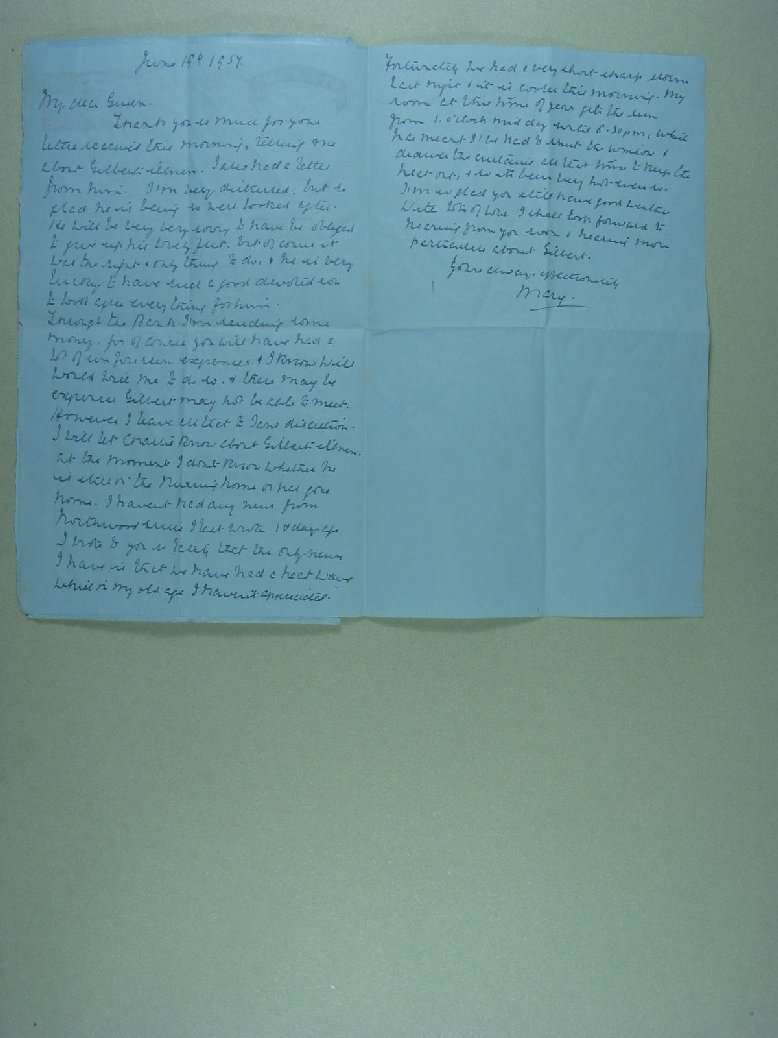 June 19th 1957.
My dear Gwen.
Thank you so much for your
letter received this morning, telling me
about Gilbert's illness. I also had a letter
from him. I'm very distressed, but so
glad he is being so well looked after.
He will be very very sorry to have be obliged
to give up his lovely flat. but of course it
was the right & only thing to do, & he is very
lucky to have such a good devoted son
to look after everything for him.
Through the Bank I'm sending some
money, for of course you will have had a
lot of unforeseen expenses & I know Will
would wish me to do so. & there may be
expenses Gilbert may not be able to meet.
However I leave all that to discretion.
I will let Coralie know about Gilbert's illness.
at the moment I dont know whether he
is still in the Nursing home or has gone
home. I havent had any news from
Northwood since I last wrote 10 days ago
I wrote to you so lately that the only news
I have is that we have had a heat wave
which in my old age I havent appreciated.
Fortunately we had a very short sharp storm
last night & it is cooler this morning. My
room at this time of year gets the sun
from 1. o'clock mid day until 6.30 pm, which
has meant I've had to shut the window &
draw the curtains all that time to keep the
heat out, & so its been very hot even so.
I'm so glad you still have good
With lots of love I shall look forward to
hearing from you soon & hearing more
particulars about Gilbert.
Yours always affectionately
Mary.